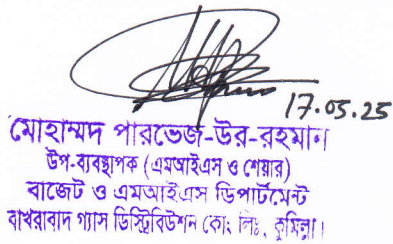 17.05.25
মোহাম্মদ পারভেজ-উর-রহমান
উপ-ব্যবস্থাপক (এমআইএস ও শেয়ার)
বাজেট ও এমআইএস ডিপার্টমেন্ট
বাখরাবাদ গ্যাস ডিস্ট্রিবিউশন কোঃ লিঃ, কুমিল্লা।